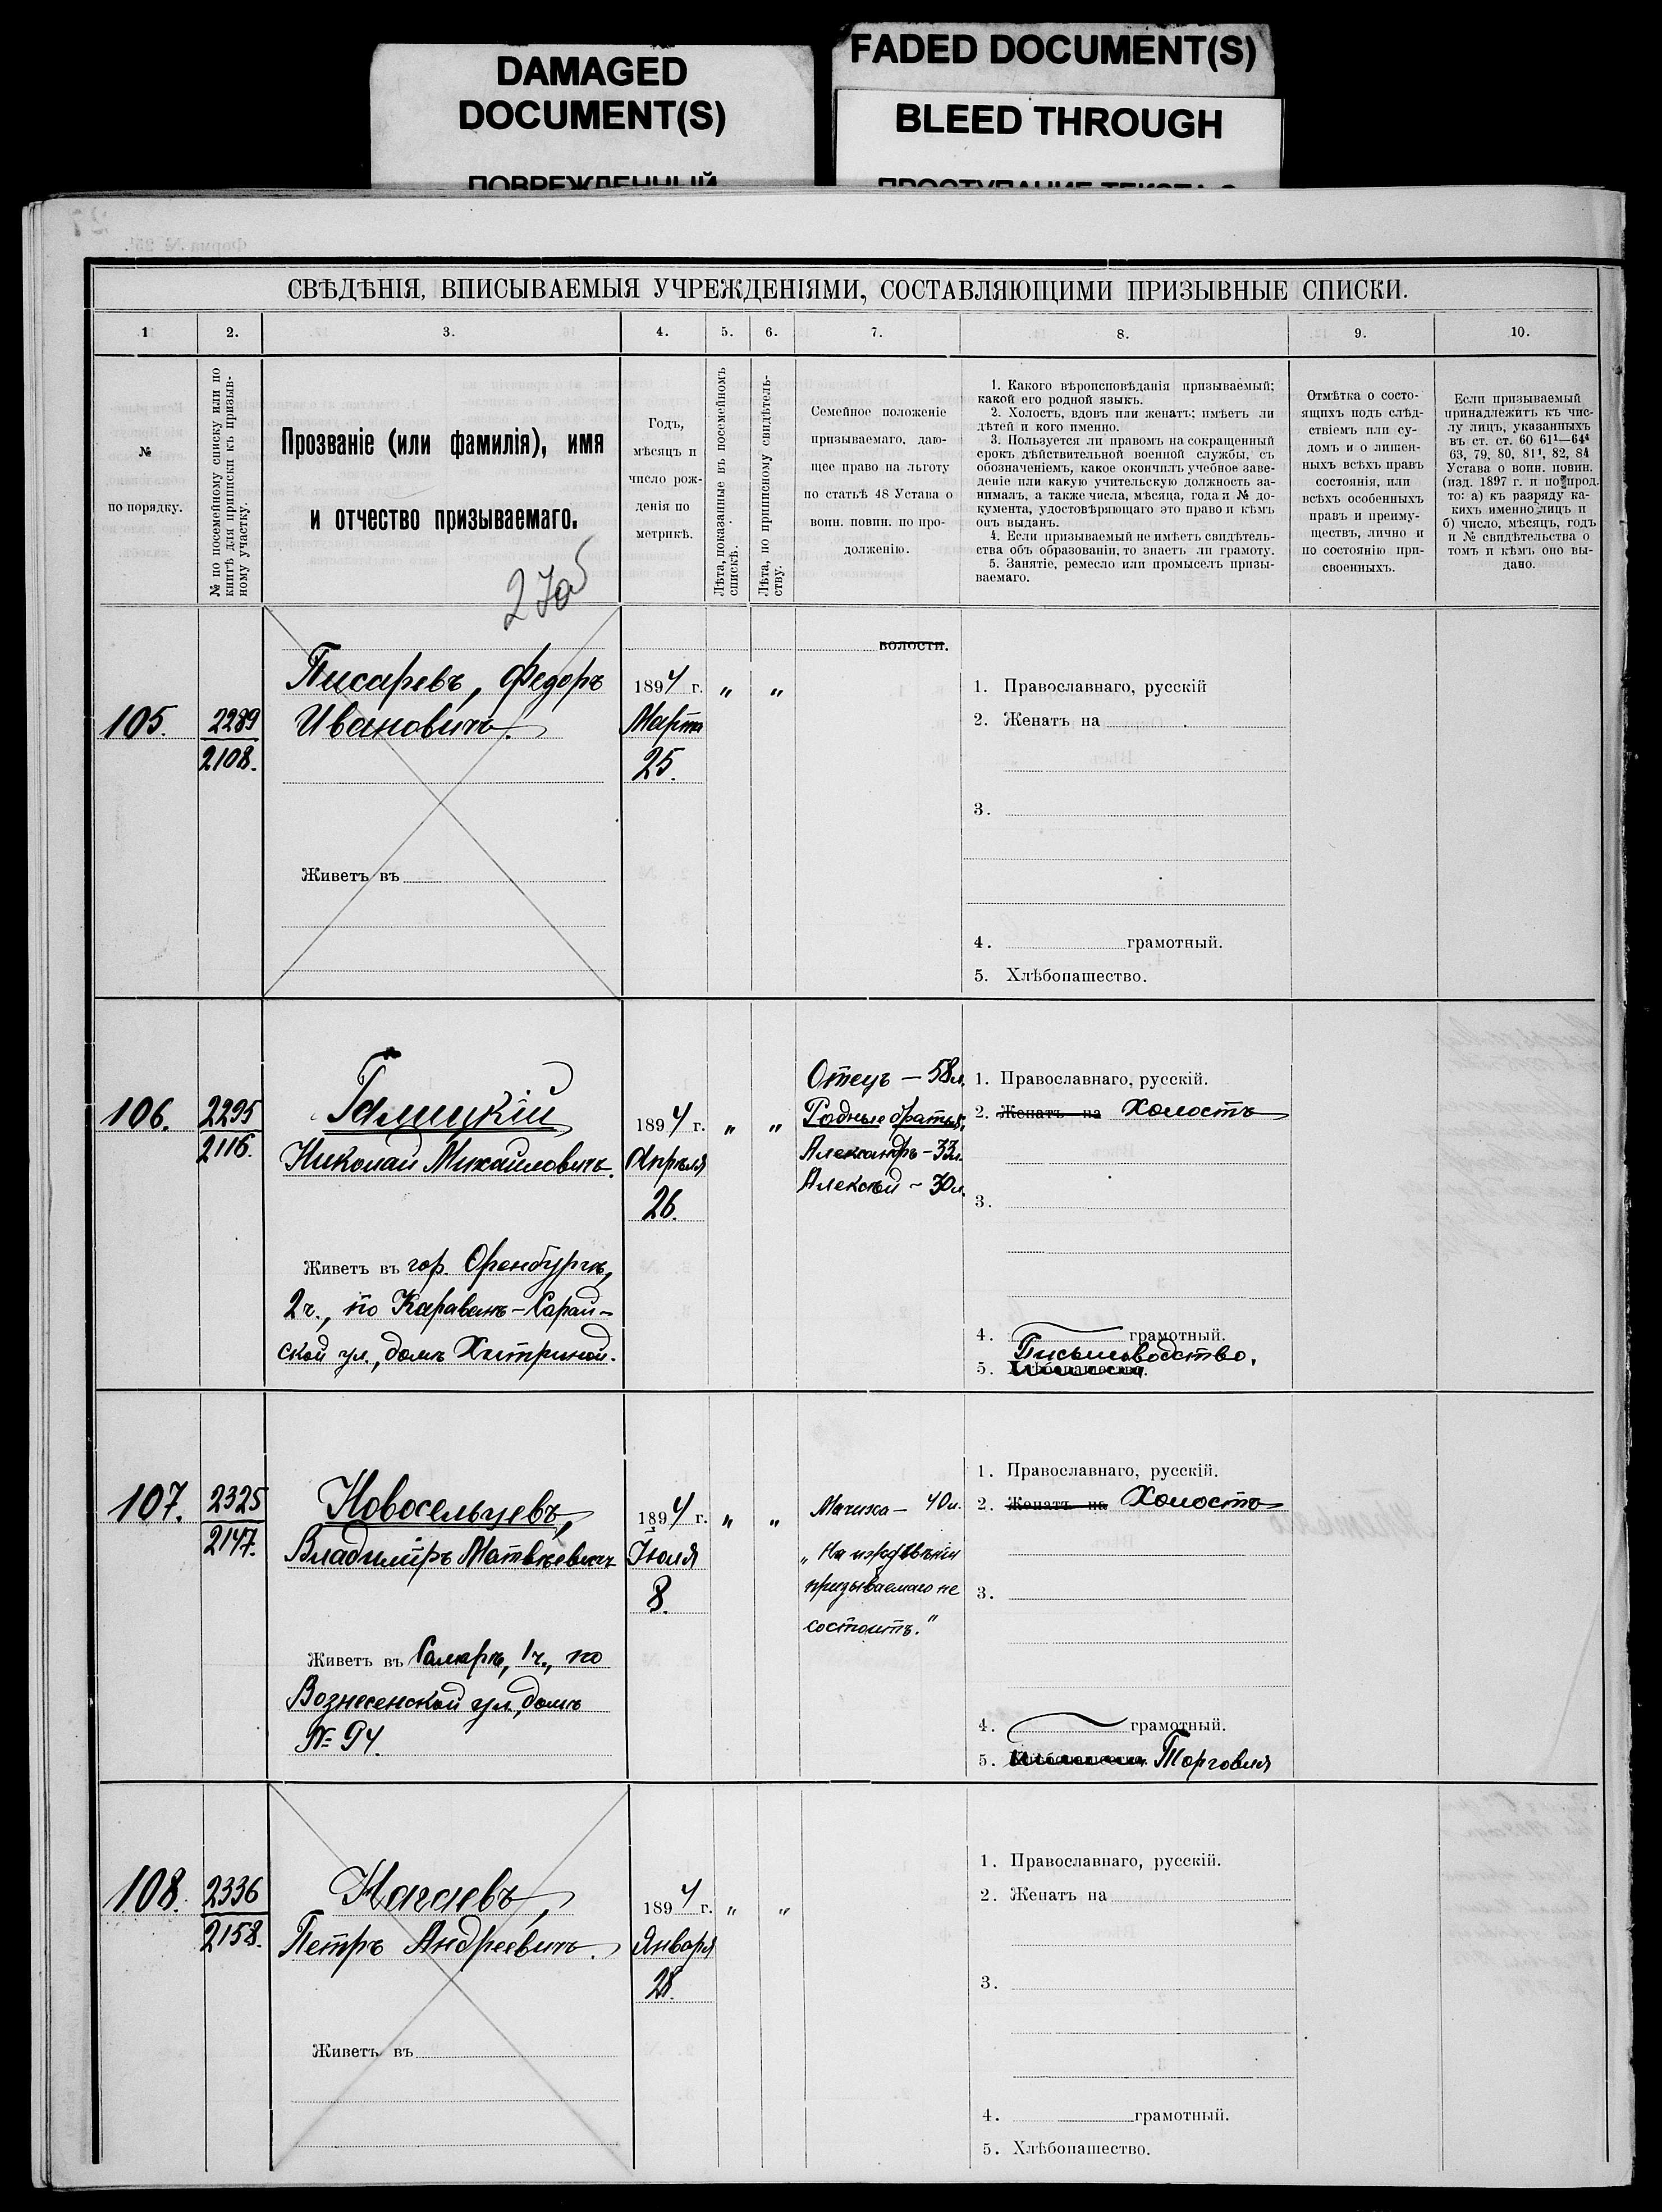 DAMAGED
DOCUMENT(S)
ПОВРЕЖДЕННЫЙ
FADED DOCUMENT(S)
BLEED THROUGH
ПРОСТУПАНИЕ ТЕКСТА С
СВѢДѢНІЯ, ВПИСЫВАЕМЫЯ УЧРЕЖДЕНІЯМИ, СОСТАВЛЯЮЩИМИ ПРИЗЫВНЫЕ СПИСКИ.
1 2. 3. 4. 5. 6. 7. 8. 9. 10.
№
по порядку.
№ по посемейному списку или по
книгѣ для приписки къ призыв-
ному участку.
Прозваніе (или фамилія), имя
и отчество призываемаго.
27об
Годъ,
мѣсяцъ и
число рож-
денія по
метрикѣ.
Лѣта, показанные въ посемейномъ
спискѣ.
Лѣта, по приписному свидѣтель-
ству.
Семейное положеніе
призываемаго, даю-
щее право на льготу
по статьѣ 48 Устава о
воин. повин. по про-
долженію.
1. Какого вѣроисповѣданія призываемый;
какой его родной языкъ.
2. Холостъ, вдовъ или женатъ; имѣетъ ли
дѣтей и кого именно.
3. Пользуется ли правомъ на сокращенный
срокъ дѣйствительной военной службы, съ
обозначеніемъ, какое окончилъ учебное заве-
деніе или какую учительскую должность за-
нималъ, а также числа, мѣсяца, года и № до-
кумента, удостовѣряющаго это право и кѣмъ
онъ выданъ.
4. Если призываемый не имѣетъ свидѣтель-
ства объ образованіи, то знаетъ ли грамоту.
5. Занятіе, ремесло или промыселъ призы-
ваемаго.
Отмѣтка о состо-
ящихъ подъ слѣд-
ствіемъ или су-
домъ и о лишен-
ныхъ всѣхъ правъ
состоянія, или
всѣхъ особенныхъ
правъ и преиму-
ществъ, лично и
по состоянію при-
своенныхъ.
Если призываемый
принадлежитъ къ чис-
лу лицъ, указанныхъ
въ ст. ст. 60 61¹—64⁴
63, 79, 80, 81¹, 82, 84
Устава о воин. повин.
(изд. 1897 г. и по прод.
то: а) къ разряду ка-
кихъ именно лицъ и
б) число, мѣсяцъ, годъ
и № свидѣтельства о
томъ и кѣмъ оно вы-
дано.
105.
2289
2108.
Писаревъ, Федоръ
Ивановичъ.
Живетъ въ
1894 г.
Марта
25.
" "
волости.
1. Православнаго, русскій
2. Женатъ на
3.
4. грамотный.
5. Хлѣбопашество.
106.
2295
2116.
Галицкій
Николай Михайловичъ.
Живетъ въ гор. Оренбургѣ,
2 ч., по Караванъ-Сарай-
ской ул., домъ Хитриной.
1894 г.
Апрѣля
26.
" "
Отецъ — 58 л.
Родные братья:
Александръ — 33 л.
Алексѣй — 30 л.
1. Православнаго, русскій.
2. Женатъ на Холостъ
3.
4. грамотный.
Письмоводство.
5. Хлѣбопашество.
107.
2325
2147.
Новосельцевъ,
Владиміръ Матвѣевичъ
Живетъ въ Самарѣ, 1 ч., по
Вознесенской ул., домъ
№ 94.
1894 г.
Іюля
8.
" "
Мачиха — 40 л.
„На иждивеніи
призываемаго не
состоитъ."
1. Православнаго, русскій.
2. Женатъ на Холостъ
3.
4. грамотный.
5. Хлѣбопашество. Торговля
108.
2336
2158.
Нагаевъ,
Петръ Андреевичъ.
Живетъ въ
1894 г.
Января
28.
" "
1. Православнаго, русскій.
2. Женатъ на
3.
4. грамотный.
5. Хлѣбопашество.